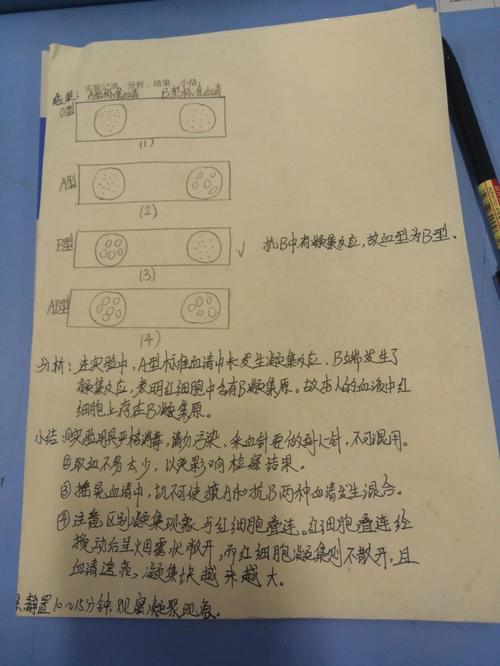 实验记录、分析、结果、小结：
结果：A型标准血清 B型标准血清
O型
(1)
A型
(2)
B型
抗B中有凝集反应,故血型为B型.
(3)
AB型
(4)
分析：在实验中,A型标准血清中未发生凝集反应,B端发生了
凝集反应,表明红细胞中含有B凝集原。故本人的血液中红
细胞上存在B凝集原。
小结：①实验用具严格消毒,勿污染,采血针要做到一人一针,不可混用。
②取血不易太少,以免影响检察结果。
③摇晃血清中,切不可使抗A和抗B两种血清发生混合。
④注意区别凝集现象与红细胞叠连。红细胞叠连经
搅动后呈烟雾状散开,而红细胞凝集则不散开,且
血清透亮,凝集块越来越大。
静置10~15分钟,观察凝聚现象。